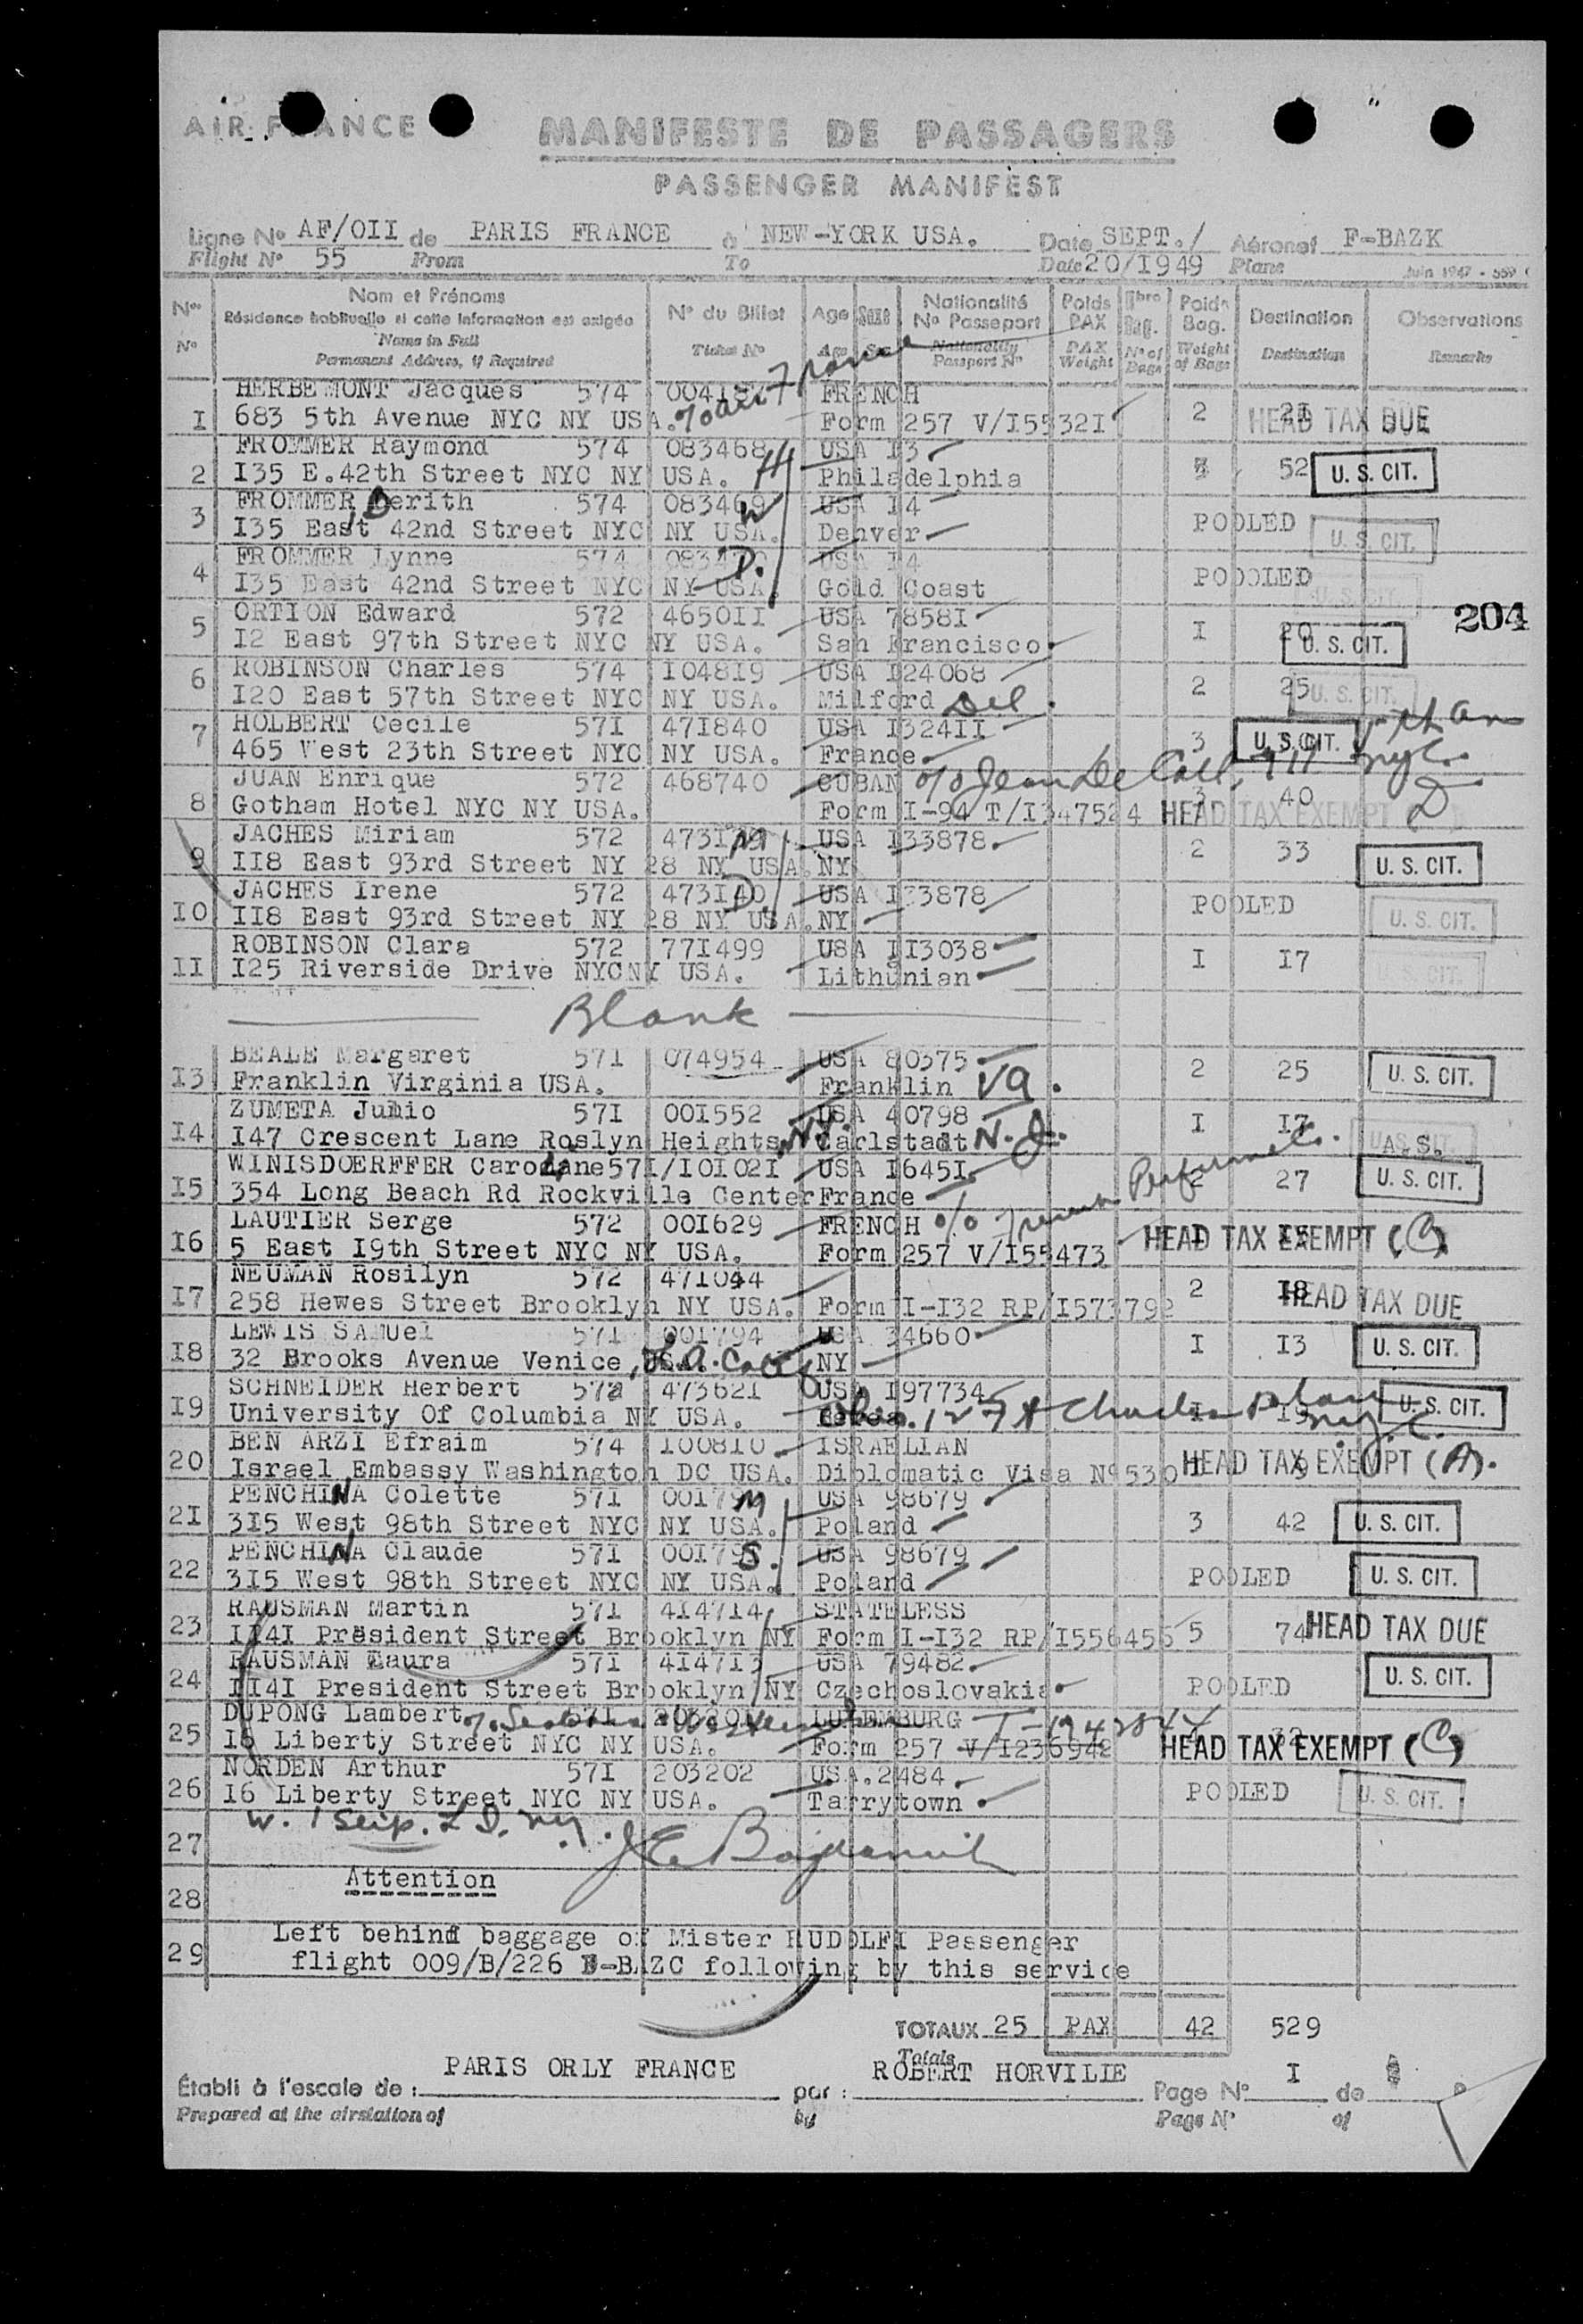 AIR FRANCE
MANIFESTE DE PASSAGERS
PASSENGER MANIFEST
Ligne Nº AF/OII de PARIS FRANCE à NEW-YORK USA. Date SEPT./ Aéronef F-BAZK
Flight Nº 55 From To Date 20/I949 Plane Juin 1947 - 559
Nos Nom et Prénoms Nº du Billet Age Sexe Nationalité Poids Nbre Poids Destination Observations
Résidence habituelle si cette information est exigée Nº Passeport PAX Bag. Bag.
Nº Name in Full Ticket Nº Age Sex Nationality PAX Nº of Weight Destination Remarks
Permanent Address, if Required Passport Nº Weight Bags of Bags
HERBEMONT Jacques 574 FRENCH
I 683 5th Avenue NYC NY USA. % Air France Form 257 V/I5532I 2 2I HEAD TAX DUE
FROMMER Raymond 574 083468 H USA I3
2 I35 E.42th Street NYC NY USA. Philadelphia 52 U. S. CIT.
FROMMER, Berith 574 083469 W USA I4
3 I35 East 42nd Street NYC NY USA. Denver POOLED U. S. CIT.
FROMMER Lynne 574 D. USA I4
4 I35 East 42nd Street NYC NY USA. Gold Coast POOOLED U. S. CIT.
204
ORTION Edward 572 4650II USA 7858I
5 I2 East 97th Street NYC NY USA. San Francisco I 20 U. S. CIT.
ROBINSON Charles 574 I048I9 USA I24068
6 I20 East 57th Street NYC NY USA. Milford Del. 2 25 U. S. CIT.
HOLBERT Cecile 57I 47I840 USA I324II
7 465 West 23th Street NYC NY USA. France 3 U. S. CIT.
JUAN Enrique 572 468740 CUBAN
8 Gotham Hotel NYC NY USA. Form I-94 T/I347524 3 40 HEAD TAX EXEMPT (D)
JACHES Miriam 572 M USA I33878
9 II8 East 93rd Street NY 28 NY USA. NY 2 33 U. S. CIT.
JACHES Irene 572 473I40 D USA I33878
I0 II8 East 93rd Street NY 28 NY USA. NY POOLED U. S. CIT.
ROBINSON Clara 572 77I499 USA II3038
II I25 Riverside Drive NYCNY USA. Lithunian I I7 U. S. CIT.
Blank
BEALE Margaret 57I 074954 USA 80375
I3 Franklin Virginia USA. Franklin Va. 2 25 U. S. CIT.
ZUMETA Julio 57I 00I552 USA 40798
I4 I47 Crescent Lane Roslyn Heights N.Y. Carlstadt N.J. I I7 U. S. CIT. A. S.
WINISDOERFFER Caroline 57I/I0I02I USA I645I
I5 354 Long Beach Rd Rockville Center France 2 27 U. S. CIT.
LAUTIER Serge 572 00I629 FRENCH
I6 5 East I9th Street NYC NY USA. Form 257 V/I55473 I HEAD TAX EXEMPT (C)
NEUMAN Rosilyn 572 47I044
I7 258 Hewes Street Brooklyn NY USA. Form I-I32 RP/I573792 2 I8 HEAD TAX DUE
LEWIS SAMUel 57I 00I794 USA 34660
I8 32 Brooks Avenue Venice, L.A. Calif. NY I I3 U. S. CIT.
SCHNEIDER Herbert 572 47362I USA I97734
I9 University Of Columbia NY USA. U. S. CIT.
BEN ARZI Efraim 574 I008I0 ISRAELIAN
20 Israel Embassy Washington DC USA. Diplomatic Visa Nº530 HEAD TAX EXEMPT (A).
PENCHINA Colette 57I M USA 98679
2I 3I5 West 98th Street NYC NY USA. Poland 3 42 U. S. CIT.
PENCHINA Claude 57I S. USA 98679
22 3I5 West 98th Street NYC NY USA. Poland POOLED U. S. CIT.
RAUSMAN Martin 57I 4I47I4 STATELESS
23 II4I President Street Brooklyn NY Form I-I32 RP/I556455 5 74 HEAD TAX DUE
RAUSMAN Laura 57I 4I47I3 USA 79482
24 II4I President Street Brooklyn NY Czechoslovakia POOLED U. S. CIT.
DUPONG Lambert 57I LUXEMBURG
25 I6 Liberty Street NYC NY USA. Form 257 V/I236942 32 HEAD TAX EXEMPT (C)
NORDEN Arthur 57I 203202 USA.2484
26 I6 Liberty Street NYC NY USA. Tarrytown POOLED U. S. CIT.
27
Attention
28
Left behind baggage of Mister RUDOLFI Passenger
29 flight 009/B/226 F-BAZC following by this service
TOTAUX 25 PAX 42 529
Totals
Établi à l'escale de : PARIS ORLY FRANCE par : ROBERT HORVILIE Page Nº I de
Prepared at the airstation of by Page Nº of